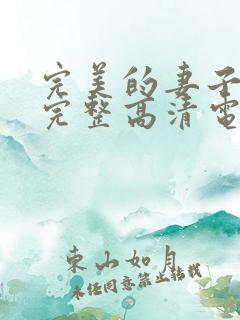 完美的妻子
完整高清電
東山如月
未经同意禁止转载